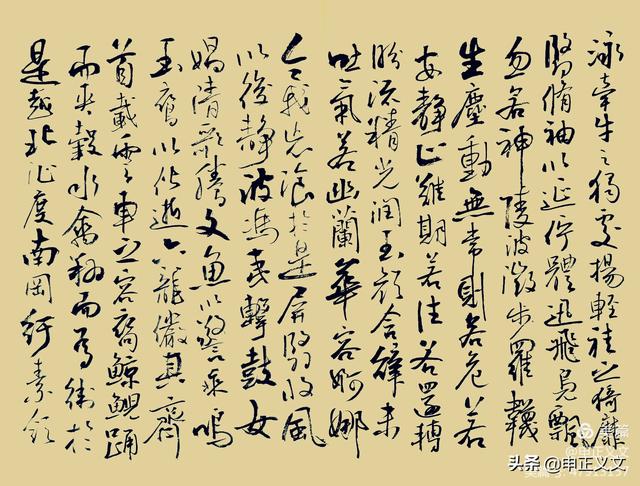 泳牽牛之獨處揚輕袿之猗靡
翳脩袖以延佇體迅飛鳧飄
忽若神陵波微步羅襪
生塵動無常則若危若
安靜止難期若往若還轉
眄流精光潤玉顏含辭未
吐氣若幽蘭華容婀娜
令我忘湌於是屏翳收風
以後靜波馮夷擊鼓女
媧清歌騰文魚以警乘鳴
玉鸞以偕逝六龍儼其齊
首載雲車之容裔鯨鯢踴
而夾轂水禽翔而為衛於
是越北沚度南岡紆素領
@申正义文
头条 @申正义文